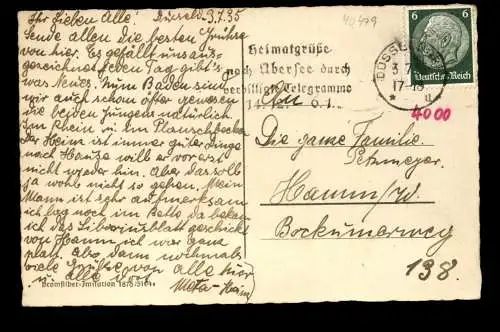 Ihr lieben Alle! Düsseld 3.7.35
Sende allen die besten Grüße
von hier. Es gefällt uns aus-
gezeichnet jeden Tag gibt's
was Neues. Zum Baden sind
wir auch schon öfter gewesen
die beiden Jungens natürlich
Im Rhein u im Planschbecken
Der Heim ist immer guter Dinge
nach Hause will er vorerst
nicht wieder hin. Aber das soll
ja wohl nicht so gehen. Mein
Mann ist sehr aufmerksam
ich lag noch im Bette da bekam
ich das Liboriusblatt geschickt
von Hamm ich war ganz
platt. Also dann nochmals
viele Grüße von alle hier
u alle dort
Meta-Heim
Bromsilber-Imitation
40479
Heimatgrüße
nach Übersee durch
verbilligte Telegramme
14.12. 6.1.
DÜSSELDORF
3.7.
17-18
6
6
Deutsches Reich
4000
An
Die ganze Familie
Petzmeyer
Hamm i/W.
Bockumerweg
138.